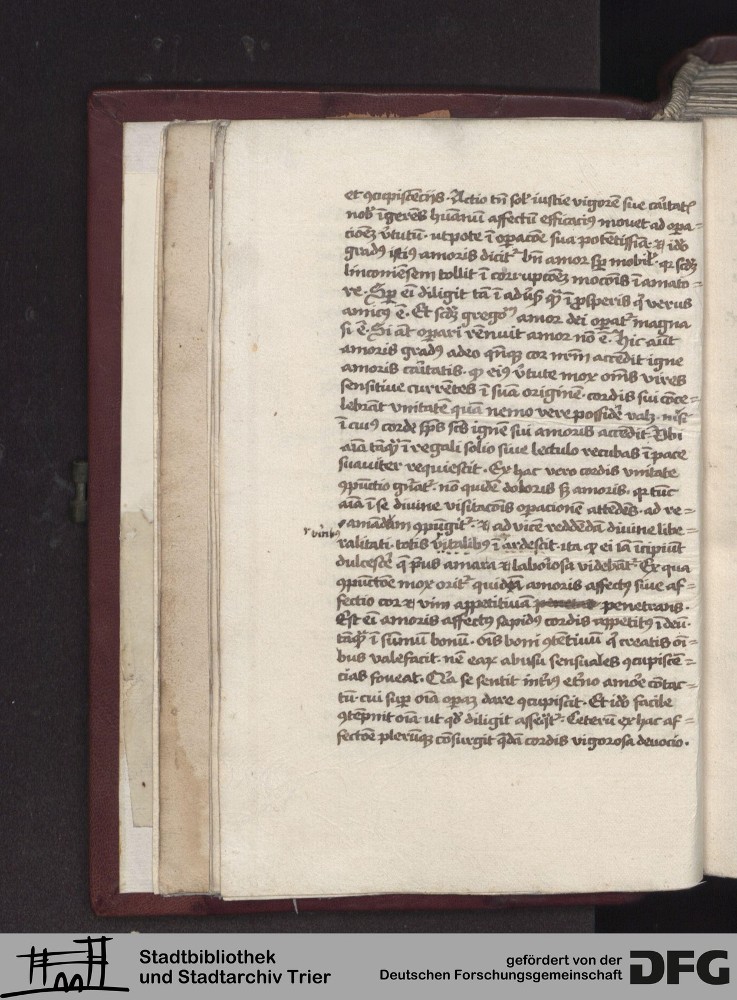 et ꝯcupiscēcijs. Actio tn̄ sol' iustie vigorē siue caritat᷒
nob' īgerēs humanū affectū efficaciꝰ mouet ad opa-
cōēȝ v̄tutū. utpote ī opacōe sua potētissīa. et ido
gradꝰ istiꝰ amoris dicit' bn̄ amor sꝑ mobil'. qr scdȝ
linconiēsem tollit ī corrupcōēȝ mocōis ī amato-
re. Sꝑ eī diligit tā ī adūsꝭ qͣȝ ī ꝓsperis qͥ verus
amicꝰ ē. Et scdȝ gregoꝝ amor dei opat' magna
si ē. Si aūt opari rēnuit amor nō ē. Hic aūt
amoris gradꝰ adeo qn̄qȝ cor nr̄m accēdit igne
amoris caritatis. ꝙ eiꝰ v̄tute mox om̄s vires
sensitiue currētes ī suā originē. cordis sui cōce-
lebrāt vnitatē quā nemo vere possidē valȝ. nisi
ī cuiꝰ corde sp̄s sc̄s ignē sui amoris accēdit. Vbi
aīa tāqͣȝ ī regali solio siue lectulo recubās ī pace
suauiter requiescit. Ex hac vero cordis vnitate
ꝯpunctio gn̄at'. nō quidē doloris sȝ amoris. qr tūc
aīa ī se diuine visitacōis opacionē attēdēs. ad re-
amādum ꝯpūgit'. et ad vicē reddēdā diuine libe-
ralitati. totis vitalibꝰ ī ardescit. ita ꝙ ei iā īcipiūt
dulcescē q̄ pͥus amara et laboriosa videbāt'. Ex qua
ꝯpūctōe mox orit' quidam amoris affectꝰ siue af-
fectio cor et vim appetitiuā penetrans.
Est eī amoris affectꝰ sapidꝰ cordis appetitꝰ ī deū.
tāqͣȝ ī sūmū bonū. oīs boni ꝯtētiuū qͥ creatis oī-
bus valefacit. nē eaꝝ abusu sensuales ꝯcupiscē-
cias foueat. Qͥa se sentit intͥꝰ etͤno amōe cōtac-
tū. cui suꝑ oīa opaȝ dare ꝯcupiscit. Et ido facile
ꝯtēpnit oīa ut qd' diligit asseqͣt'. Ceterū ex hac af-
fectōe plerūqȝ cōsurgit qͣdā cordis vigorosa deuocio.
Stadtbibliothek
und Stadtarchiv Trier
gefördert von der
Deutschen Forschungsgemeinschaft
DFG